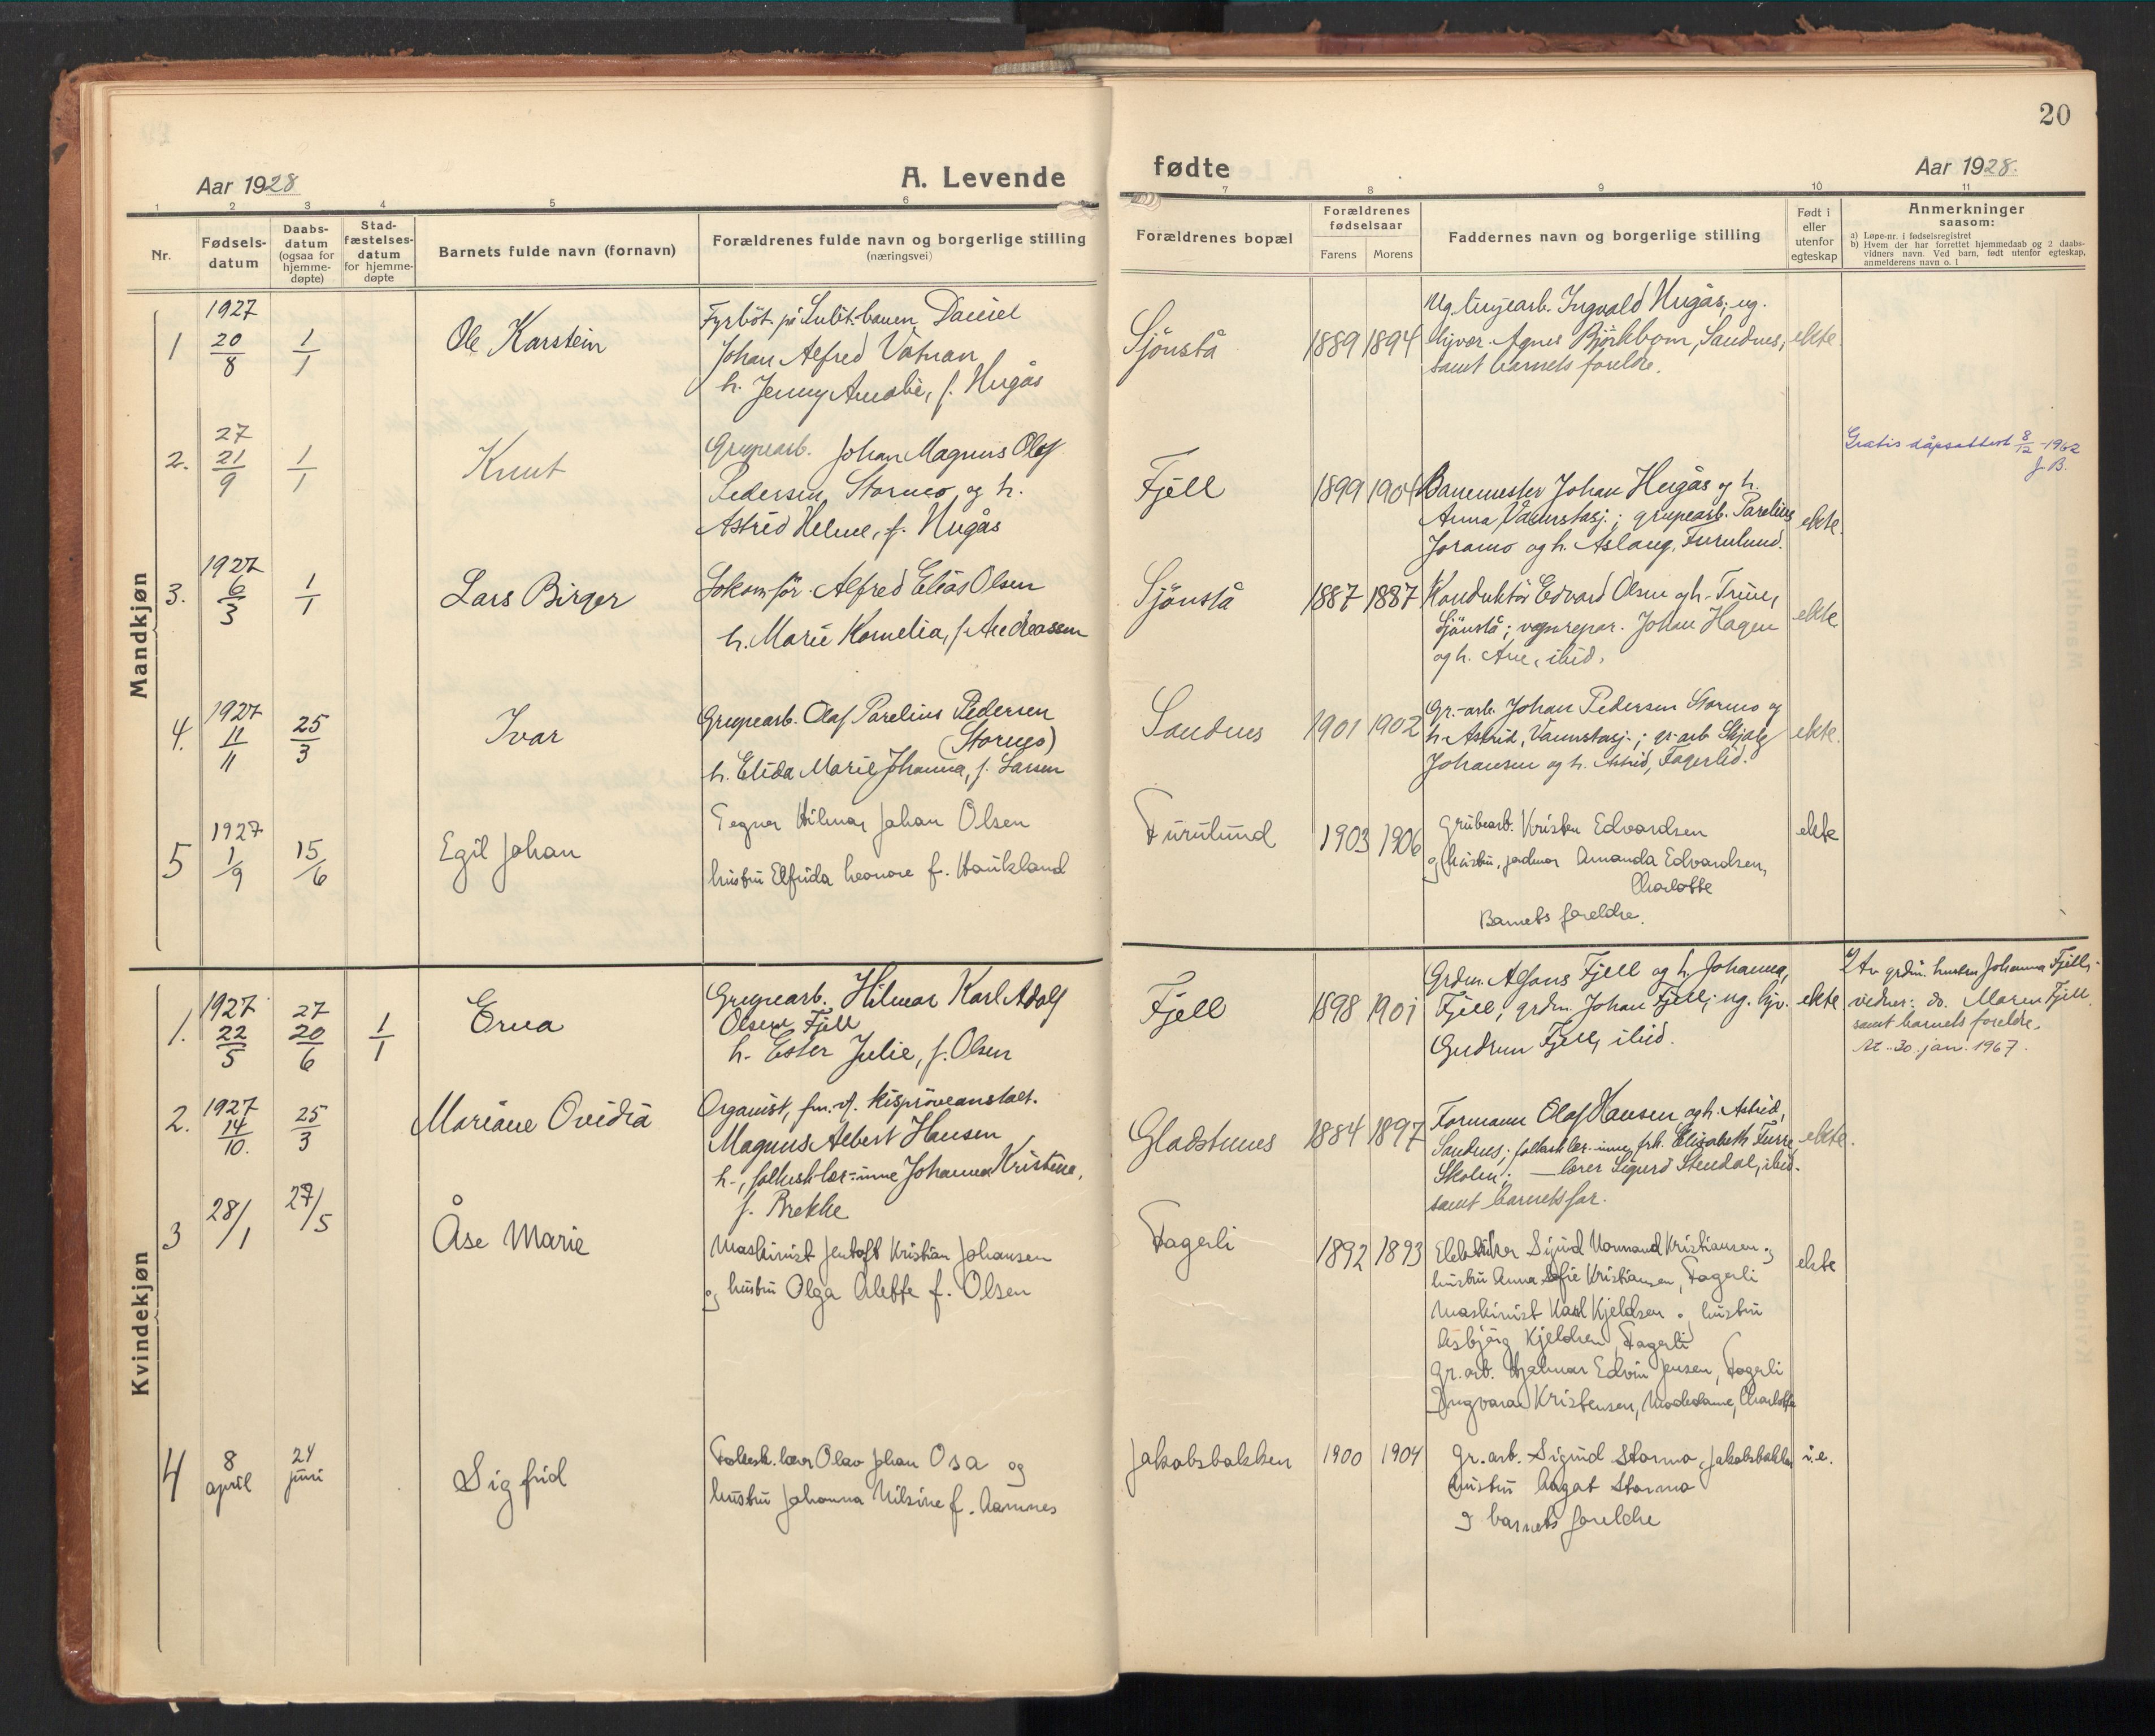 20
Aar 1928
A. Levende
fødte
Aar 1928.
1 2 3 4 5 6 7 8 9 10 11
Nr.
Fødsels-
datum
Daabs-
datum
(ogsaa for
hjemme-
døpte)
Stad-
fæstelses-
datum
for hjemme-
døpte
Barnets fulde navn (fornavn)
Forældrenes fulde navn og borgerlige stilling
(næringsvei)
Forældrenes bopæl
Forældrenes
fødselsaar
Farens
Morens
Faddernes navn og borgerlige stilling
Født i
eller
utenfor
egteskap
Anmerkninger
saasom:
a) Løpe-nr. i fødselsregistret
b) Hvem der har forrettet hjemmedaab og 2 daabs-
vidners navn. Ved barn, født utenfor egteskap,
anmelderens navn o. l
Mandkjøn
1
1927
20/8
1/1
Ole Karstein
Fyrböt. på Sulit.banen Daniel
Johan Alfred Vatnan
h. Jenny Amalie, f. Hugås
Sjönstå
1889
1894
Ug. Ingvald Hugås; ug.
Agnes Björkbom, Sandnes;
samt barnets foreldre.
ekte.
2.
27
21/9
1/1
Knut
Grupearb. Johan Magnus Olaf
Pedersen Stormo, og h.
Astrid Helene, f. Hugås
Fjell
1899
1904
Banemester Johan Hugås og h.
Anna, Vannstasj.; grupearb. Parelius
Joramo og h. Aslaug, Furulund.
ekte.
Gratis dåpsattest 8/12-1962
J. B.
3.
1927
6/3
1/1
Lars Birger
Lokomför. Alfred Elias Olsen
h. Marie Kornelia, f. Andreassen
Sjönstå
1887
1887
Konduktör Edvard Olsen og h. Trine,
Sjönstå; vognrepar. Johan Hagen
og h. Ane, ibid.
ekte.
4.
1927
11/11
25/3
Ivar
Grupearb. Olaf Parelius Pedersen
(Stormo)
h. Elida Marie Johanna, f. Larsen
Sandnes
1901
1902
Gr.-arb. Johan Pedersen Stormo og
h. Astrid, Vannstasj.; gr-arb. Skjalg
Johansen og h. Astrid, Fagerlid.
ekte.
5
1927
1/9
15/6
Egil Johan
Tegner Hilmar Johan Olsen
hustru Elfrida Leonore f. Haukland
Furulund
1903
1906
Grubearb. Kristen Edvardsen
og hustru, jordmor Amanda Edvardsen,
Charlotte
Barnets foreldre.
ekte
Kvindekjøn
1.
1927
22/5
27
20/6
1/1
Erna
Grupearb. Hilmar Karl Adolf
Olsen Fjell
h. Ester Julie, f. Olsen
Fjell
1898
1901
Grdm. Alfons Fjell og h. Johanna,
Fjell; grdm. Johan Fjell; ug. hjv.
Gudrun Fjell, ibid.
ekte
Av grdm. hustru Johanna Fjell;
vidner: do. Maren Fjell
samt barnets foreldre.
At. 30. jan. 1967.
2.
1927
14/10.
25/3
Mariane Ovidia
Organist, fm. v. kisprøveanstalt.
Magnus Albert Hansen
h., folkesk.lær-inne Johanna Kristine,
f. Brekke
Gladstunes
1884
1897
Formann Olaf Hansen og h. Astrid,
Sandnes; folkesk.lær-inne, frk. Elisabeth Furre,
Skolen; — lærer Sigurd Stendal, ibid.
samt barnets far.
ekte.
3
28/1
27/5
Åse Marie
Maskinist Jentoft Kristian Johansen
og hustru Olga Alette f. Olsen
Fagerli
1892
1893
Elektriker Sigurd Normand Kristiansen og
hustru Anna Sofie Kristiansen, Fagerli
Maskinist Karl Kjeldsen og hustru
Asbjørg Kjeldsen, Fagerli
Gr. arb. Hjalmar Edvin Jensen, Fagerli
Ingvara Kristensen, Modedame, Charlotte
ekte
4
8
april
24
juni
Sigfrid
Folkesk. lærer Olav Johan Osa og
hustru Johanna Nilsine f. Aamnes
Jakobsbakken
1900
1904
Gr. arb. Sigurd Stormo, Jakobsbakken
hustru Aagot Stormo
og barnets foreldre
i.e.